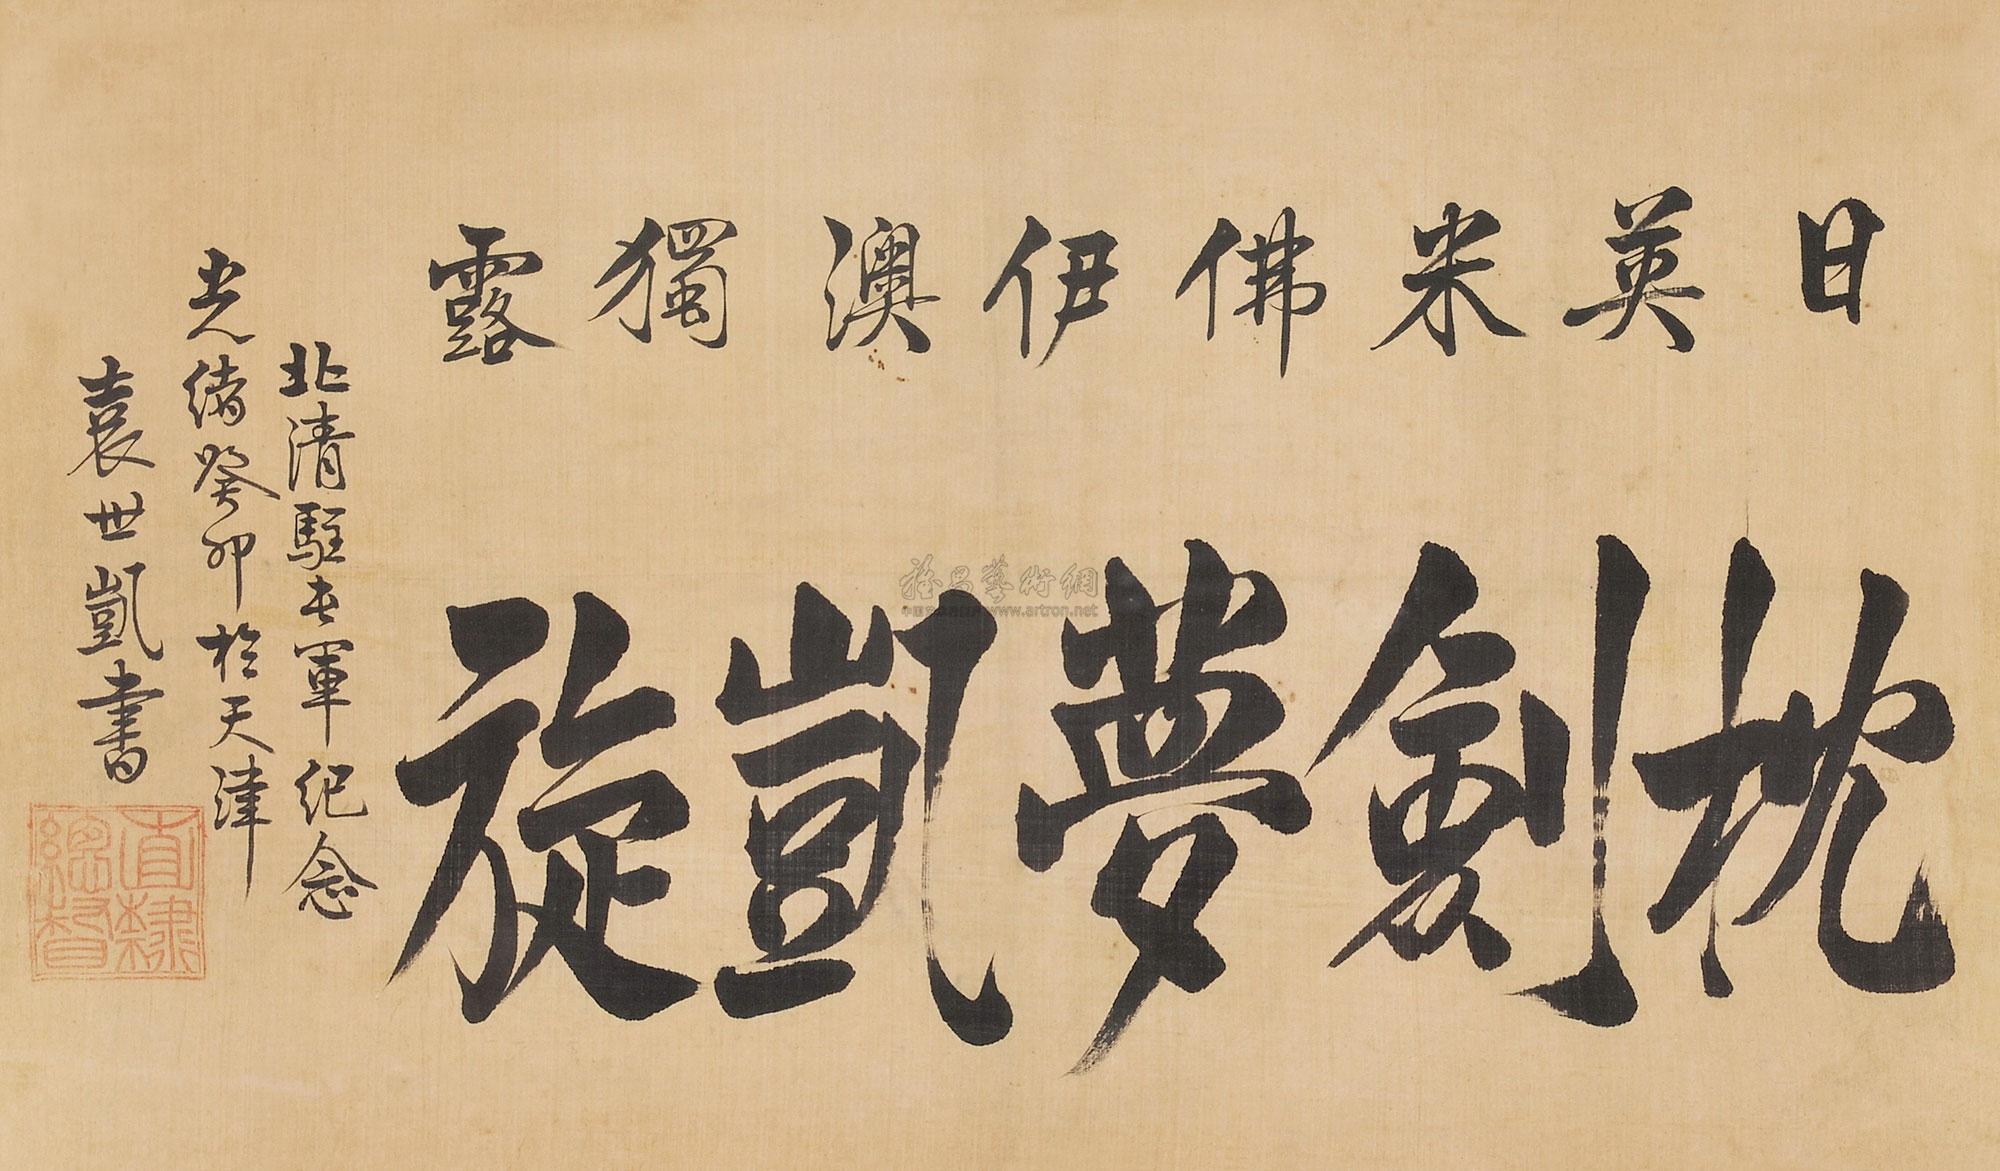 日英米佛伊澳獨露
枕劍夢凱旋
北清駐屯軍紀念
光緒癸卯於天津
袁世凱書
直隸
總督
雅昌藝術網
www.artron.net